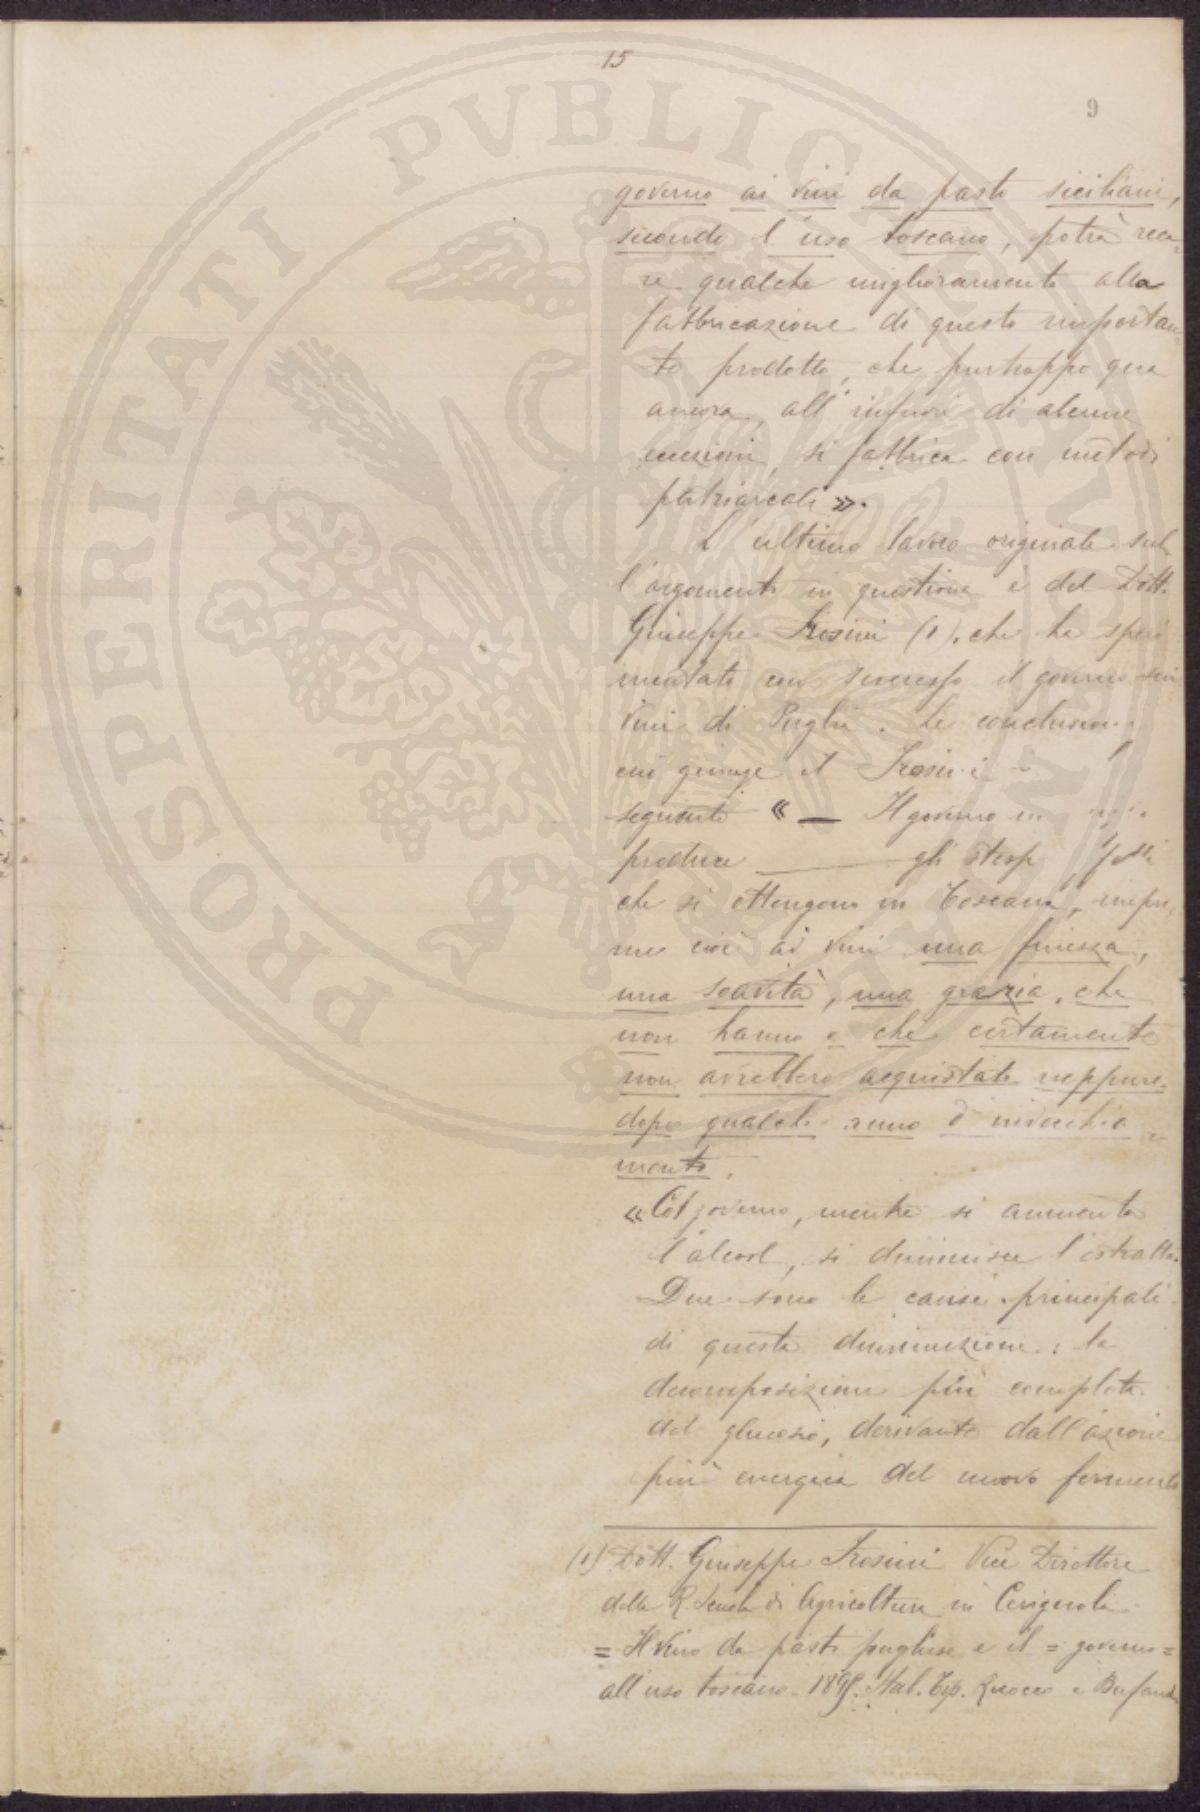 15
9
PROSPERITATI PVBLICAE
governo ai vini da pasto siciliani,
secondo l'uso toscano, potrà reca-
re qualche miglioramento alla
fabbricazione di questo importan-
te prodotto, che purtroppo qua
ancora, all'infuori di alcune
eccezioni, si fabbrica con metodi
patriarcali ».
L'ultimo lavoro originale sul-
l'argomento in questione è del Dott.
Giuseppe Frosini (1), che ha speri-
mentato con successo il governo sui
vini di Puglia. Le conclusioni
cui giunge il Frosini
seguenti « — Il governo in
produce gli stessi effetti
che si ottengono in Toscana, impri-
me cioè ai vini una finezza,
una soavità, una grazia, che
non hanno e che certamente
non avrebbero acquistato neppure
dopo qualche anno d'invecchia-
mento.
« Col governo, mentre si aumenta
l'alcool, si diminuisce l'estratto.
Due sono le cause principali
di questa diminuzione: la
decomposizione più completa
del glucosio, derivante dall'azione
più energica del nuovo fermento
(1) Dott. Giuseppe Frosini Vice Direttore
della R. Scuola di Agricoltura in Cerignola
= Il vino da pasto pugliese e il = governo =
all'uso toscano - Stab. Tip.